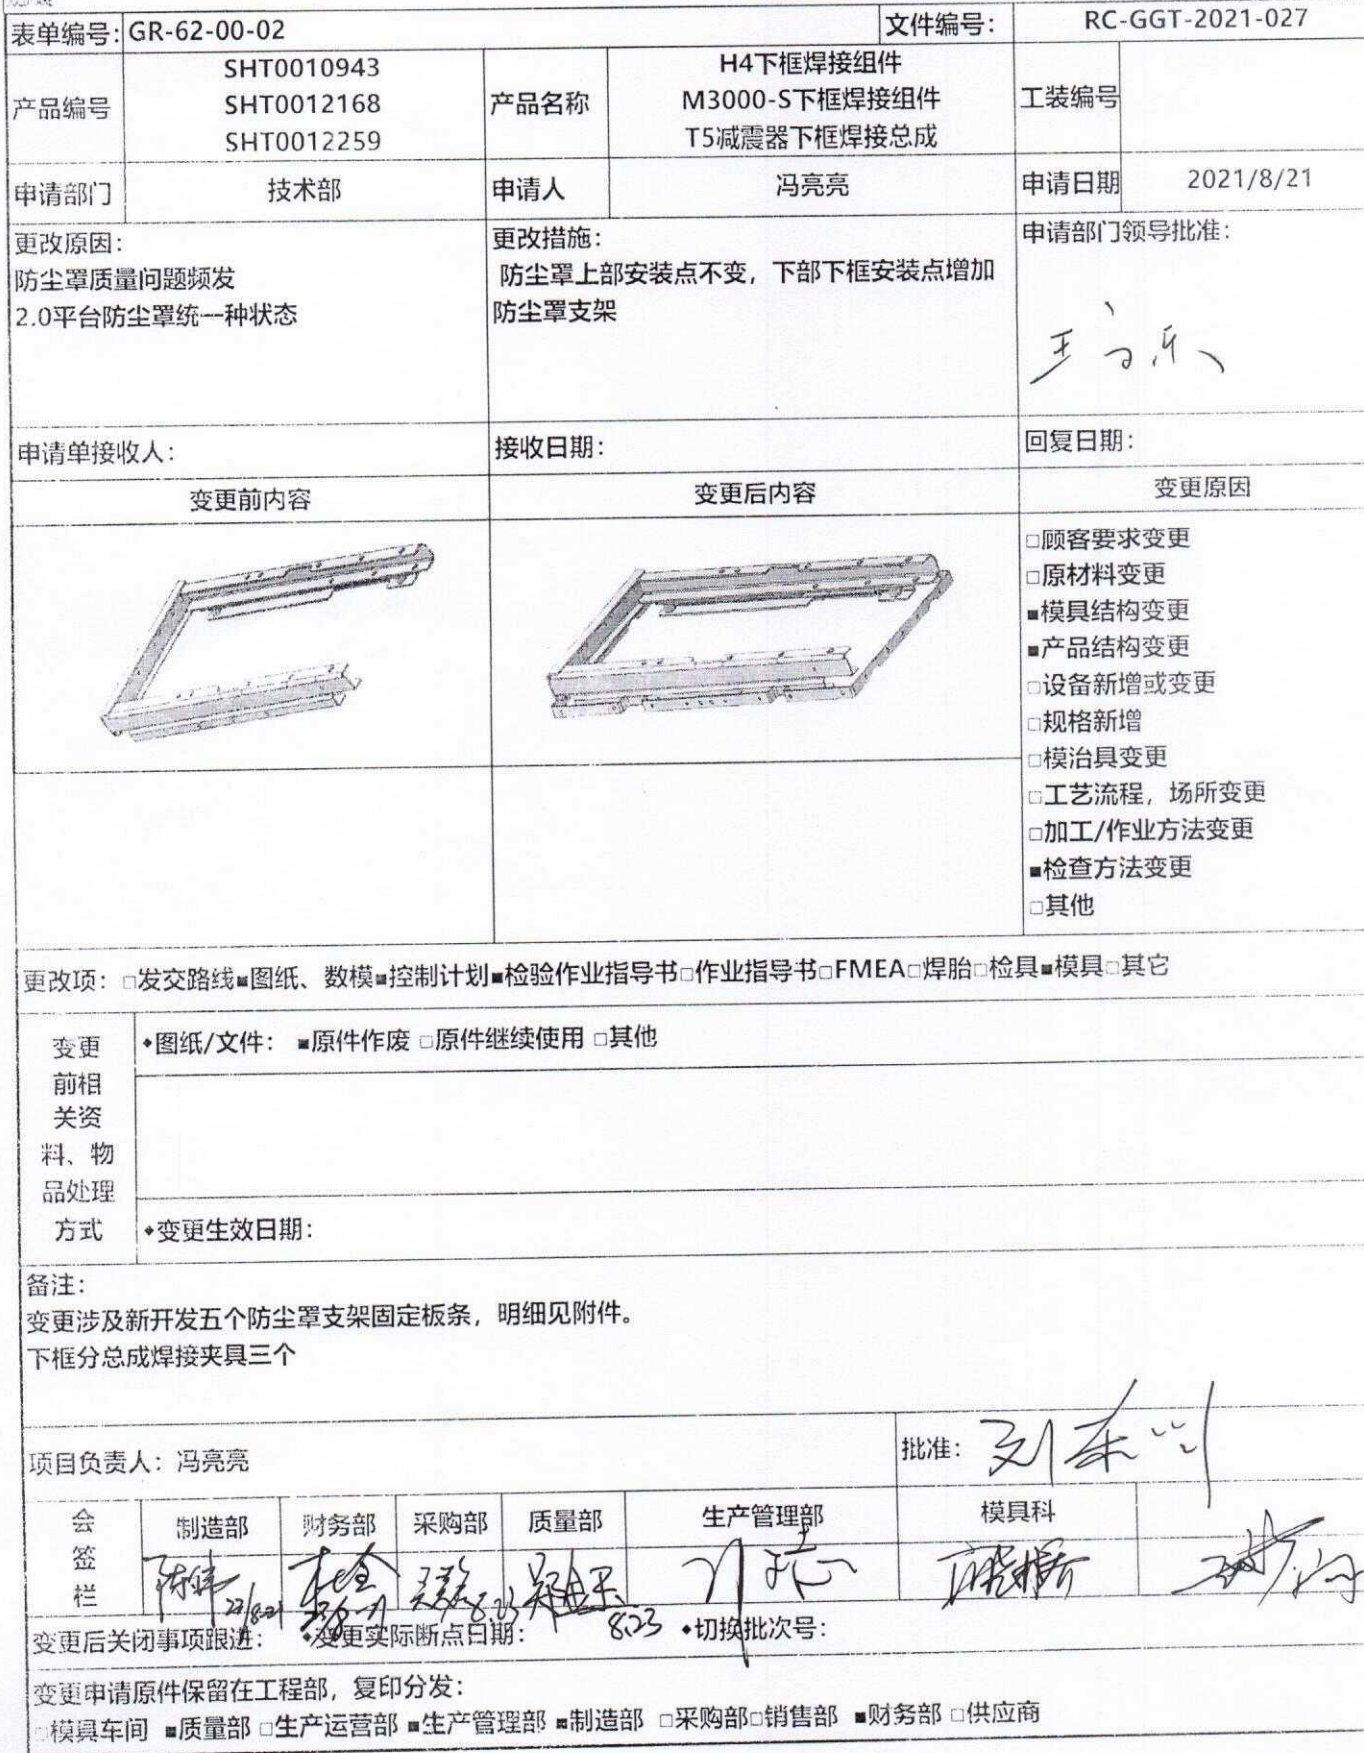 表单编号: GR-62-00-02 文件编号: RC-GGT-2021-027
产品编号 SHT0010943 SHT0012168 SHT0012259 产品名称 H4下框焊接组件 M3000-S下框焊接组件 T5减震器下框焊接总成 工装编号
申请部门 技术部 申请人 冯亮亮 申请日期 2021/8/21
更改原因:
防尘罩质量问题频发
2.0平台防尘罩统一一种状态
更改措施:
防尘罩上部安装点不变，下部下框安装点增加
防尘罩支架
申请部门领导批准:
申请单接收人: 接收日期: 回复日期:
变更前内容 变更后内容 变更原因
□顾客要求变更
□原材料变更
■模具结构变更
■产品结构变更
□设备新增或变更
□规格新增
□模治具变更
□工艺流程，场所变更
□加工/作业方法变更
■检查方法变更
□其他
更改项: □发交路线■图纸、数模■控制计划■检验作业指导书□作业指导书□FMEA□焊胎□检具■模具□其它
变更
前相
关资
料、物
品处理
方式
◆图纸/文件: ■原件作废 □原件继续使用 □其他
◆变更生效日期:
备注:
变更涉及新开发五个防尘罩支架固定板条，明细见附件。
下框分总成焊接夹具三个
项目负责人: 冯亮亮 批准:
会签栏 制造部 财务部 采购部 质量部 生产管理部 模具科
8.23 8.23
变更后关闭事项跟进: ◆变更实际断点日期: ◆切换批次号:
变更申请原件保留在工程部，复印分发:
□模具车间 ■质量部 □生产运营部 ■生产管理部 ■制造部 □采购部□销售部 ■财务部 □供应商